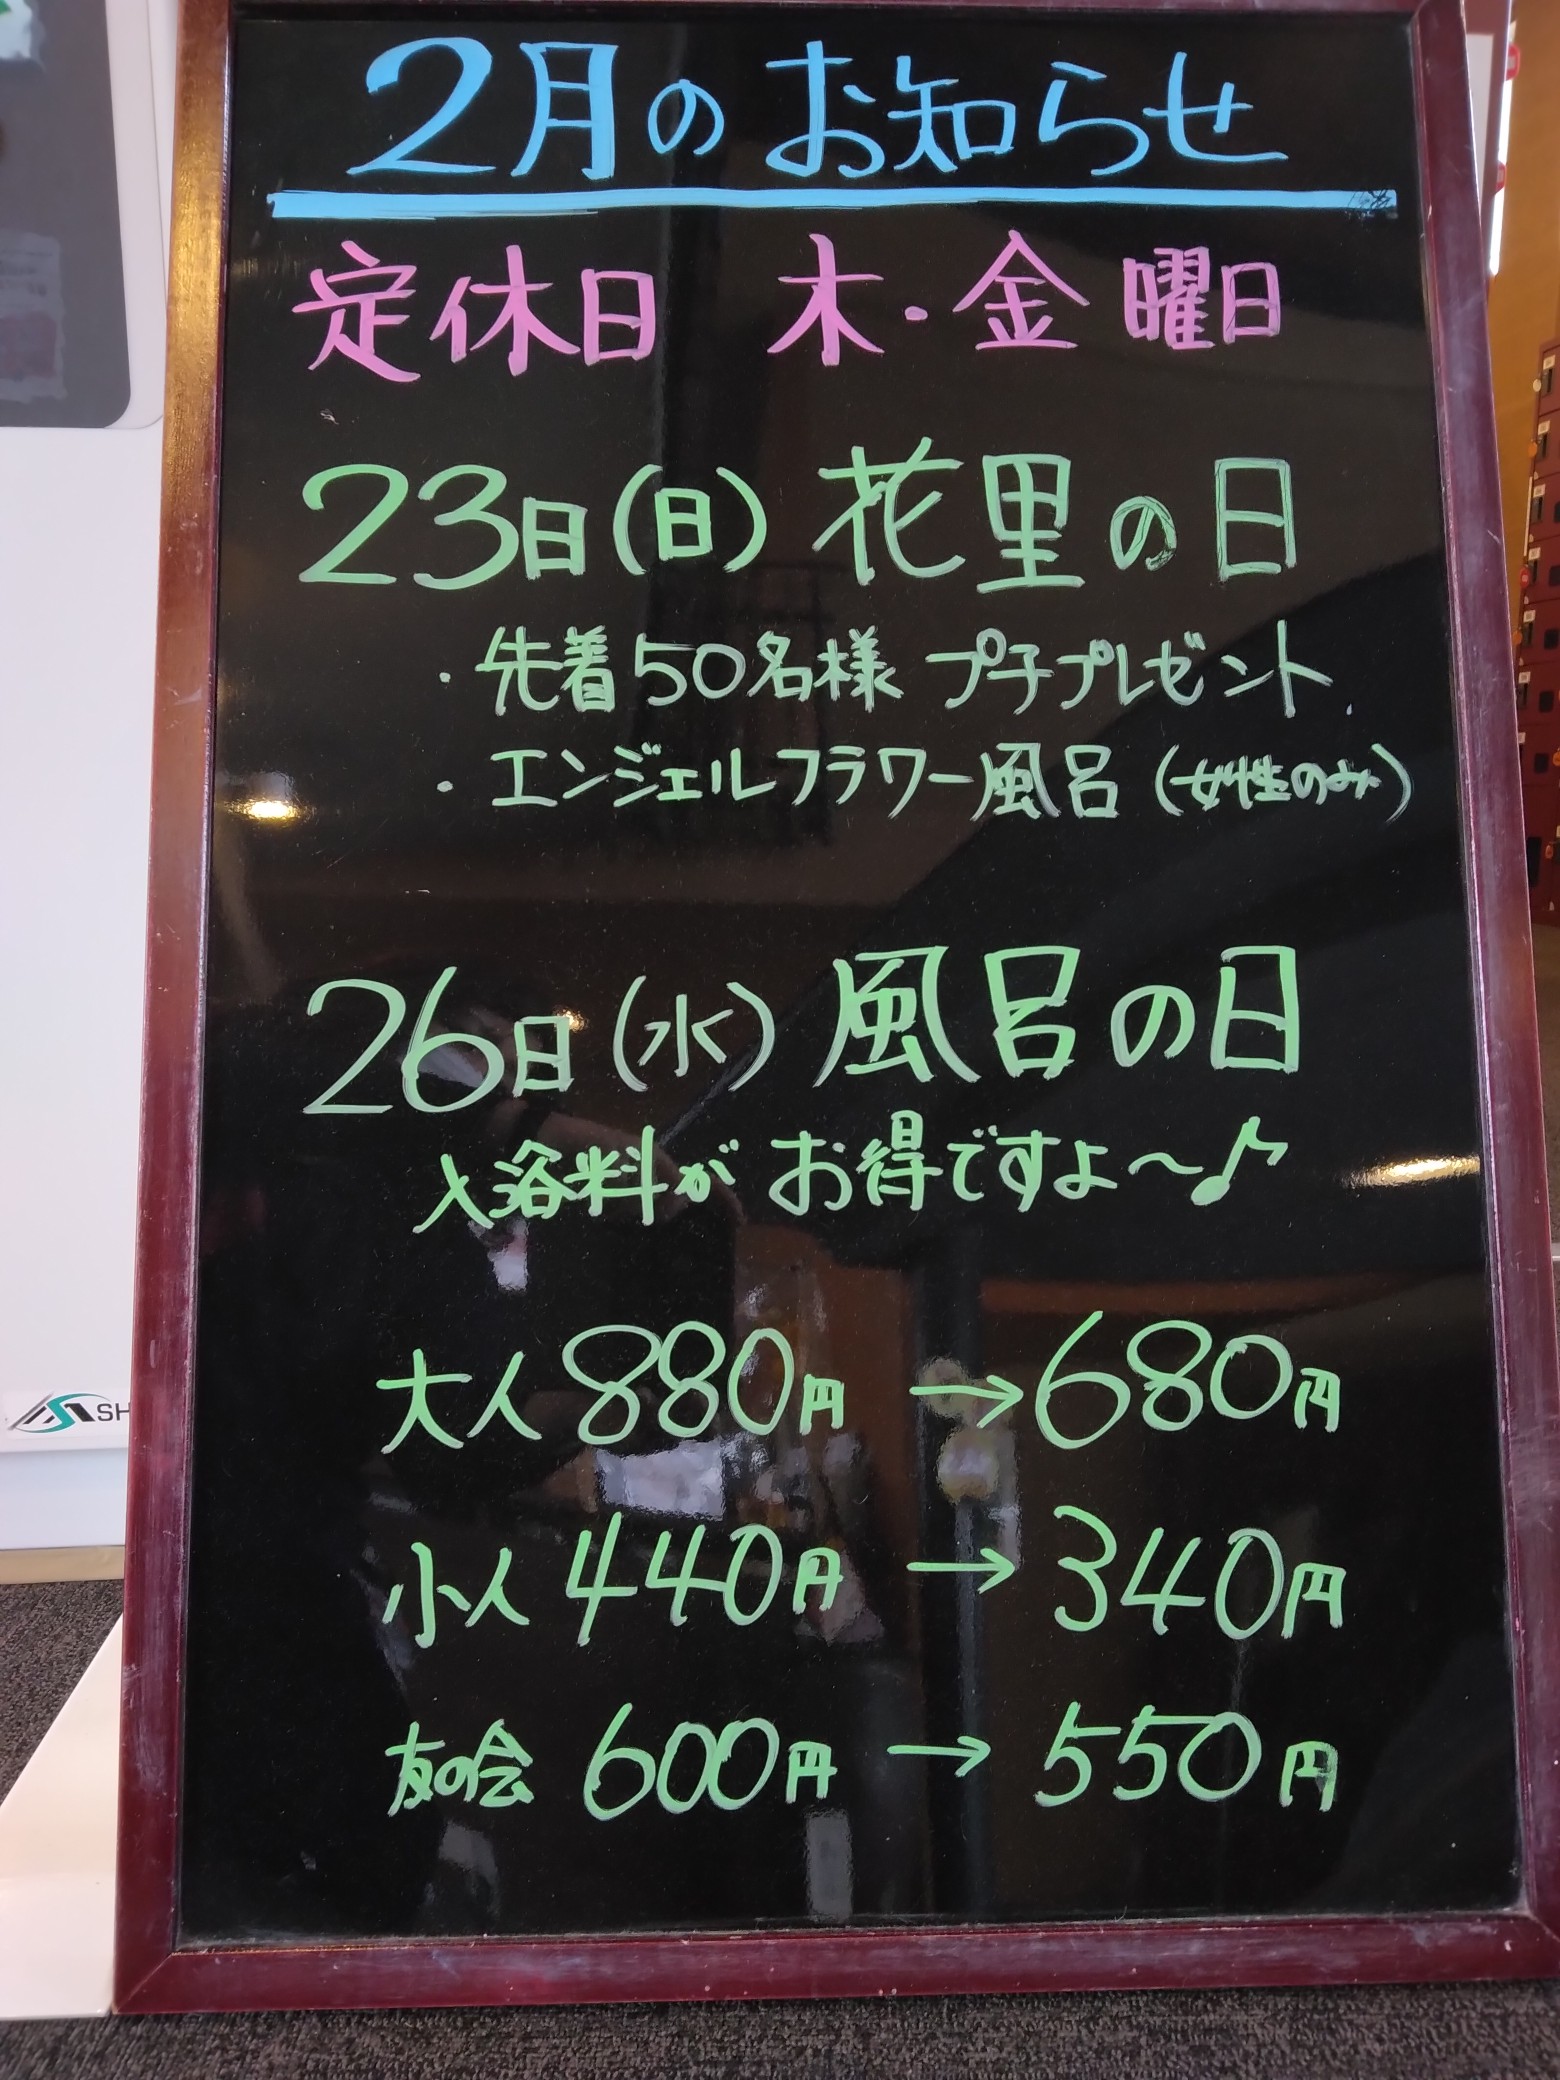 2月のお知らせ
定休日 木・金曜日
23日(日) 花里の日
・先着50名様 プチプレゼント
・エンジェルフラワー風呂(女性のみ)
26日(水) 風呂の日
入浴料がお得ですよ～♪
大人 880円 → 680円
小人 440円 → 340円
友の会 600円 → 550円
SH